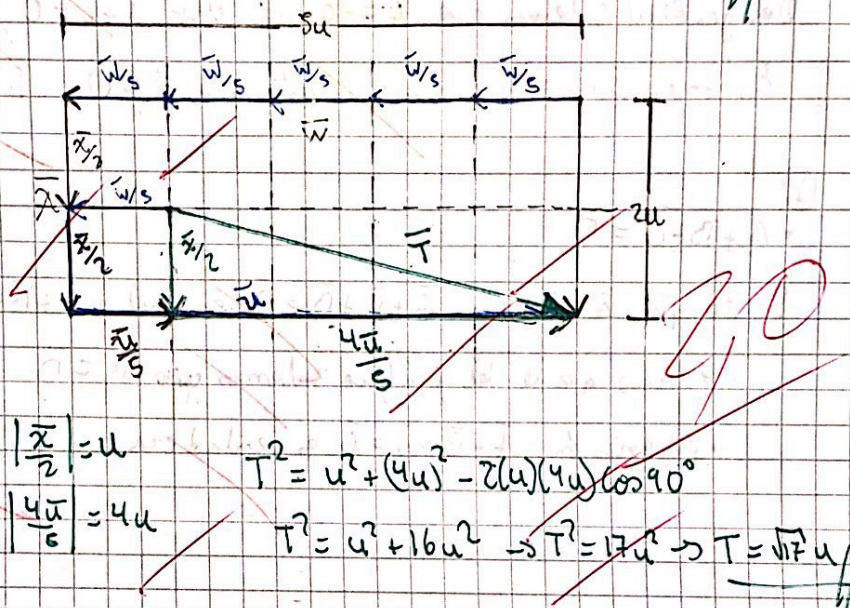 5u
w̅/5 w̅/5 w̅/5 w̅/5 w̅/5
w̅
x̅/2
x̅ w̅/5
2u
x̅/2 x̅/2 T̅
u̅
u̅/5 4u̅/5
2,0
|x̅/2| = u
T² = u² + (4u)² - 2(u)(4u) cos 90°
|4u̅/5| = 4u
T² = u² + 16u² → T² = 17u² → T = √17 u //